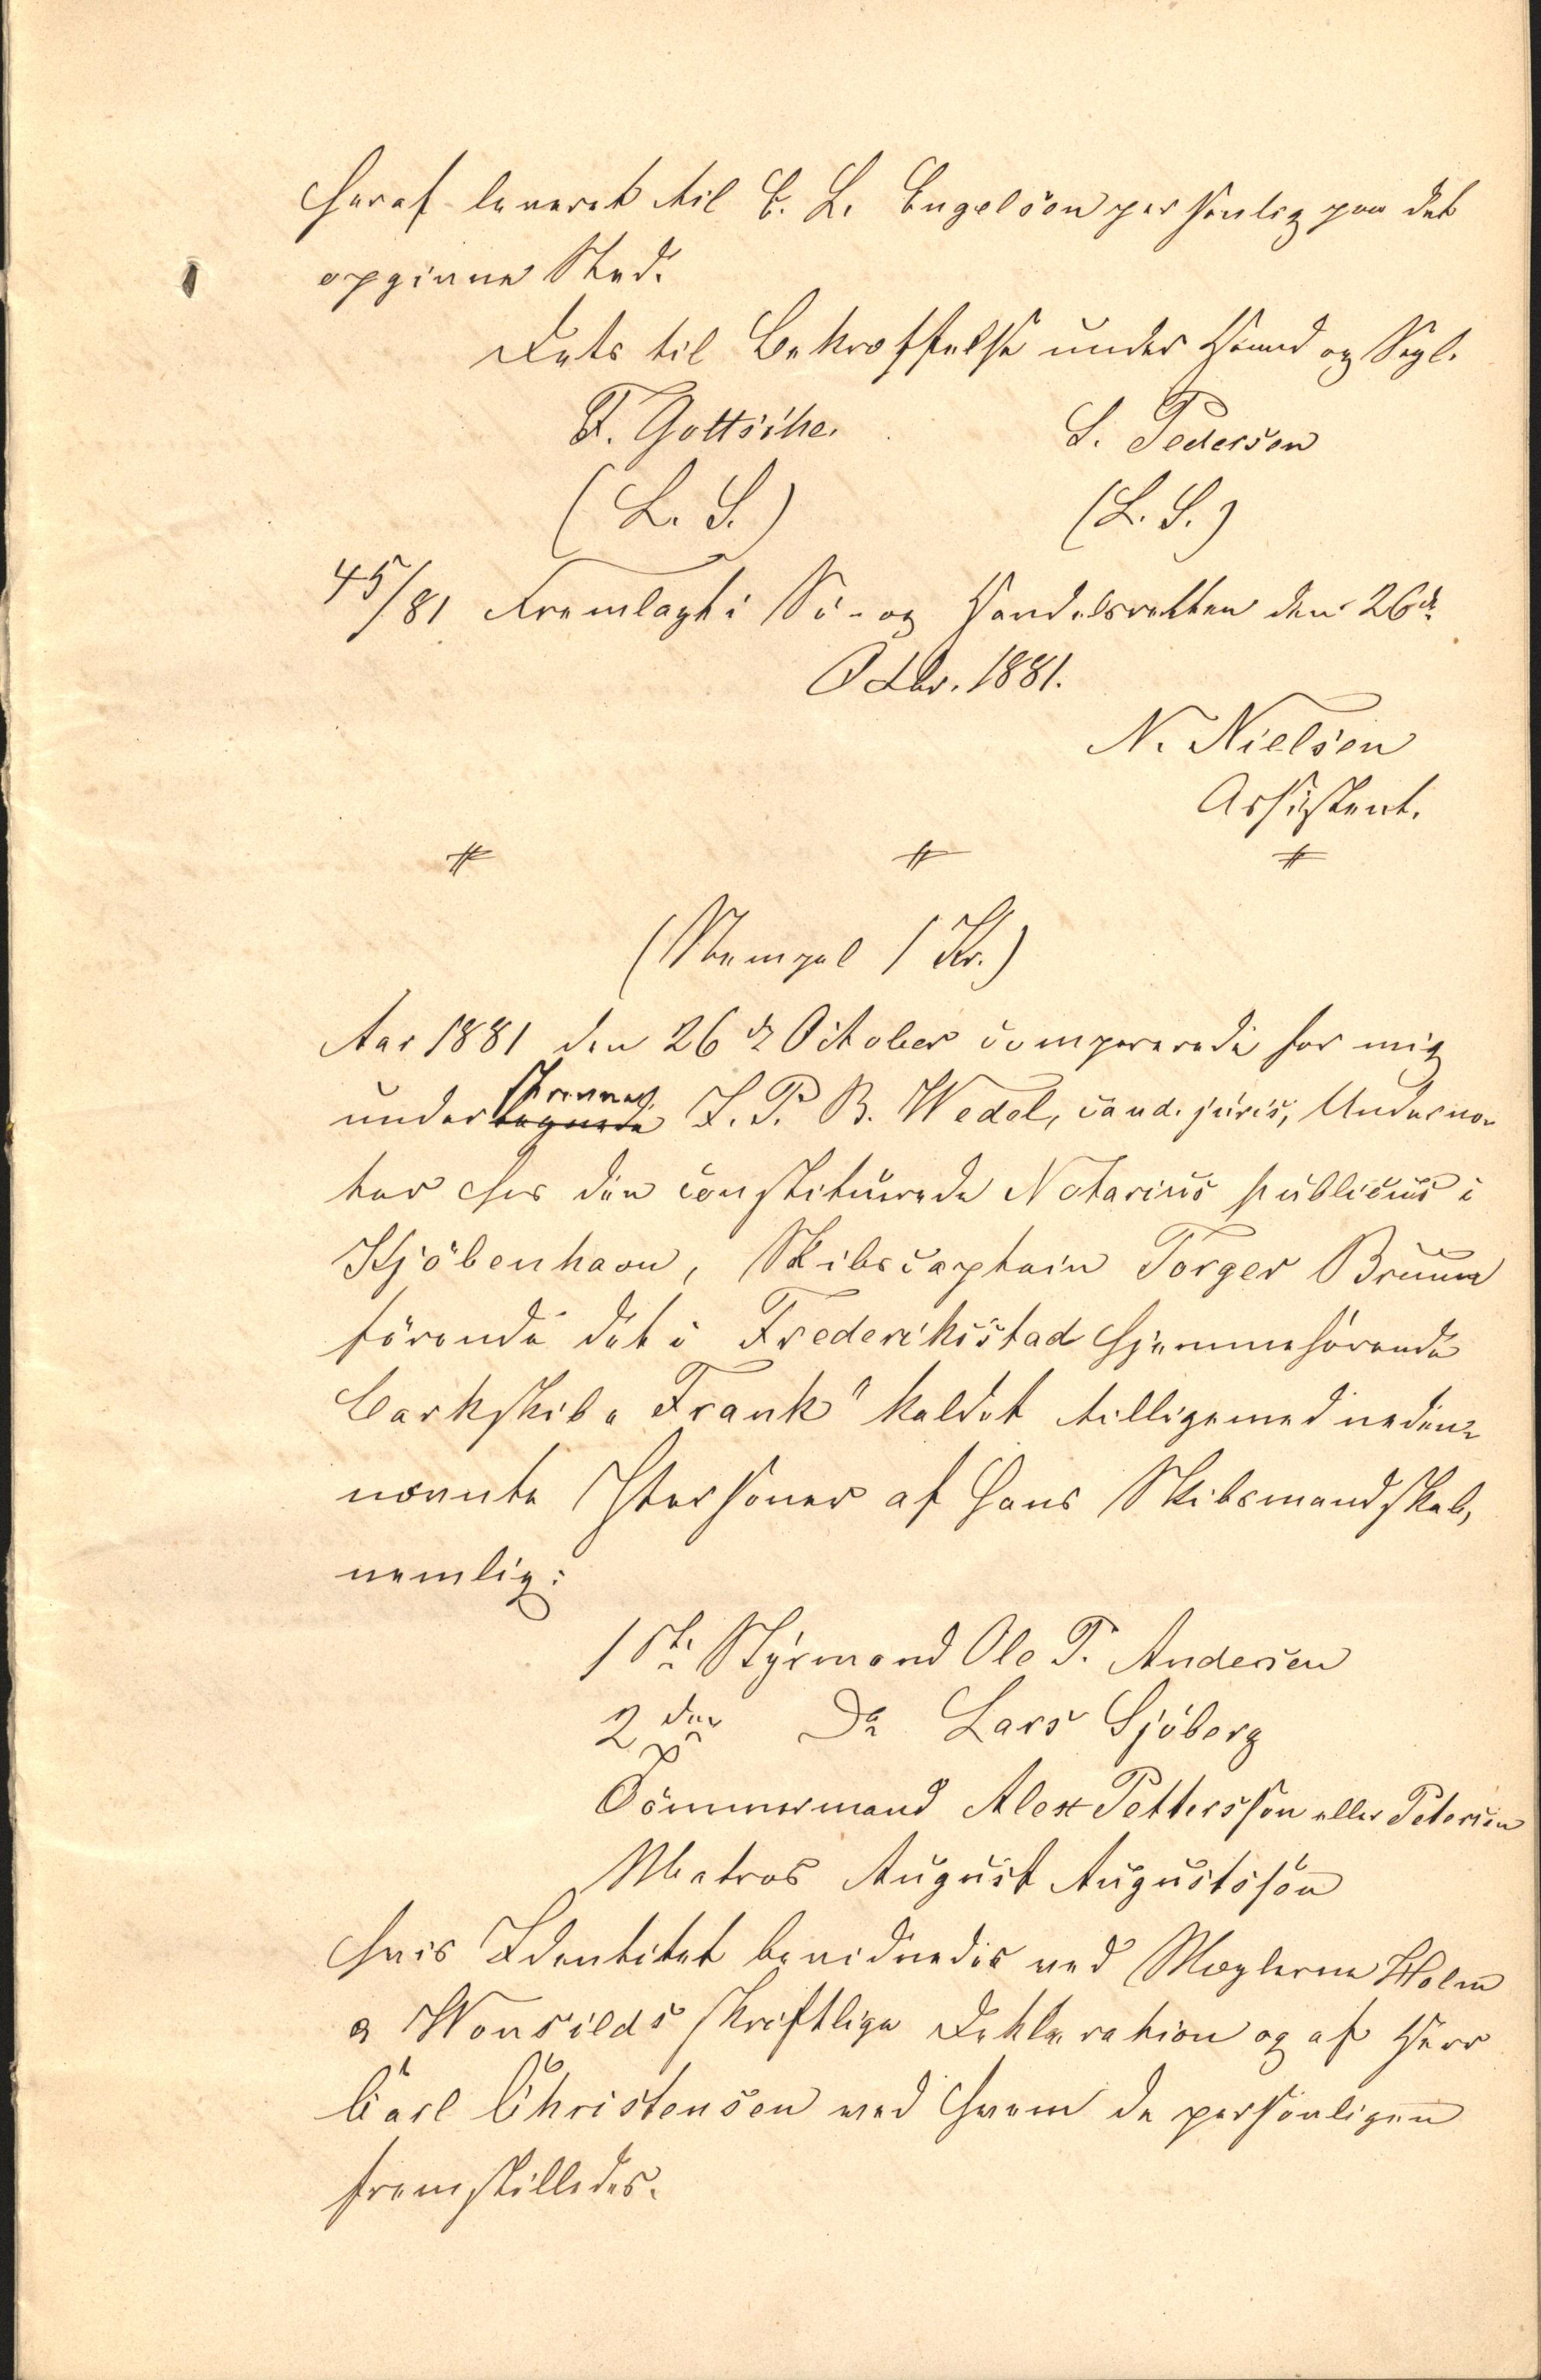 heraf leveret til C. L. Engelsen personlig paa det
opgivne Sted.
Dets til Bekræftelse under Haand og Segl.
F. Gottsche. S. Pedersen
(L. S.) (L. S.)
45/81 Fremlagt i Sø- og Handelsretten den 26de
Octbr. 1881.
N. Nielsen
Assistent.
(Stempel 1 Kr.)
Aar 1881 den 26de October comparerede for mig
underskrevne J. P. B. Wedel, cand. juris, Underno-
tar hos den constituerede Notarius publicus i
Kjöbenhavn, Skibscaptain Torger Bruun
förende det i Frederiksstad hjemmehörende
Barkskib „Frank" kaldet tilligemed neden-
nævnte Personer af hans Skibsmandskab,
nemlig:
1ste Styrmand Ole P. Andersen
2den Do Lars Sjöberg
Tömmermand Alex Pettersson eller Petersen
Matros August Augustsson
hvis Identitet bevidnedes ved Mæglerne Holm
& Wonsilds skriftlige Deklaration og af Herr
Carl Christensen ved hvem de personligen
fremstilledes.